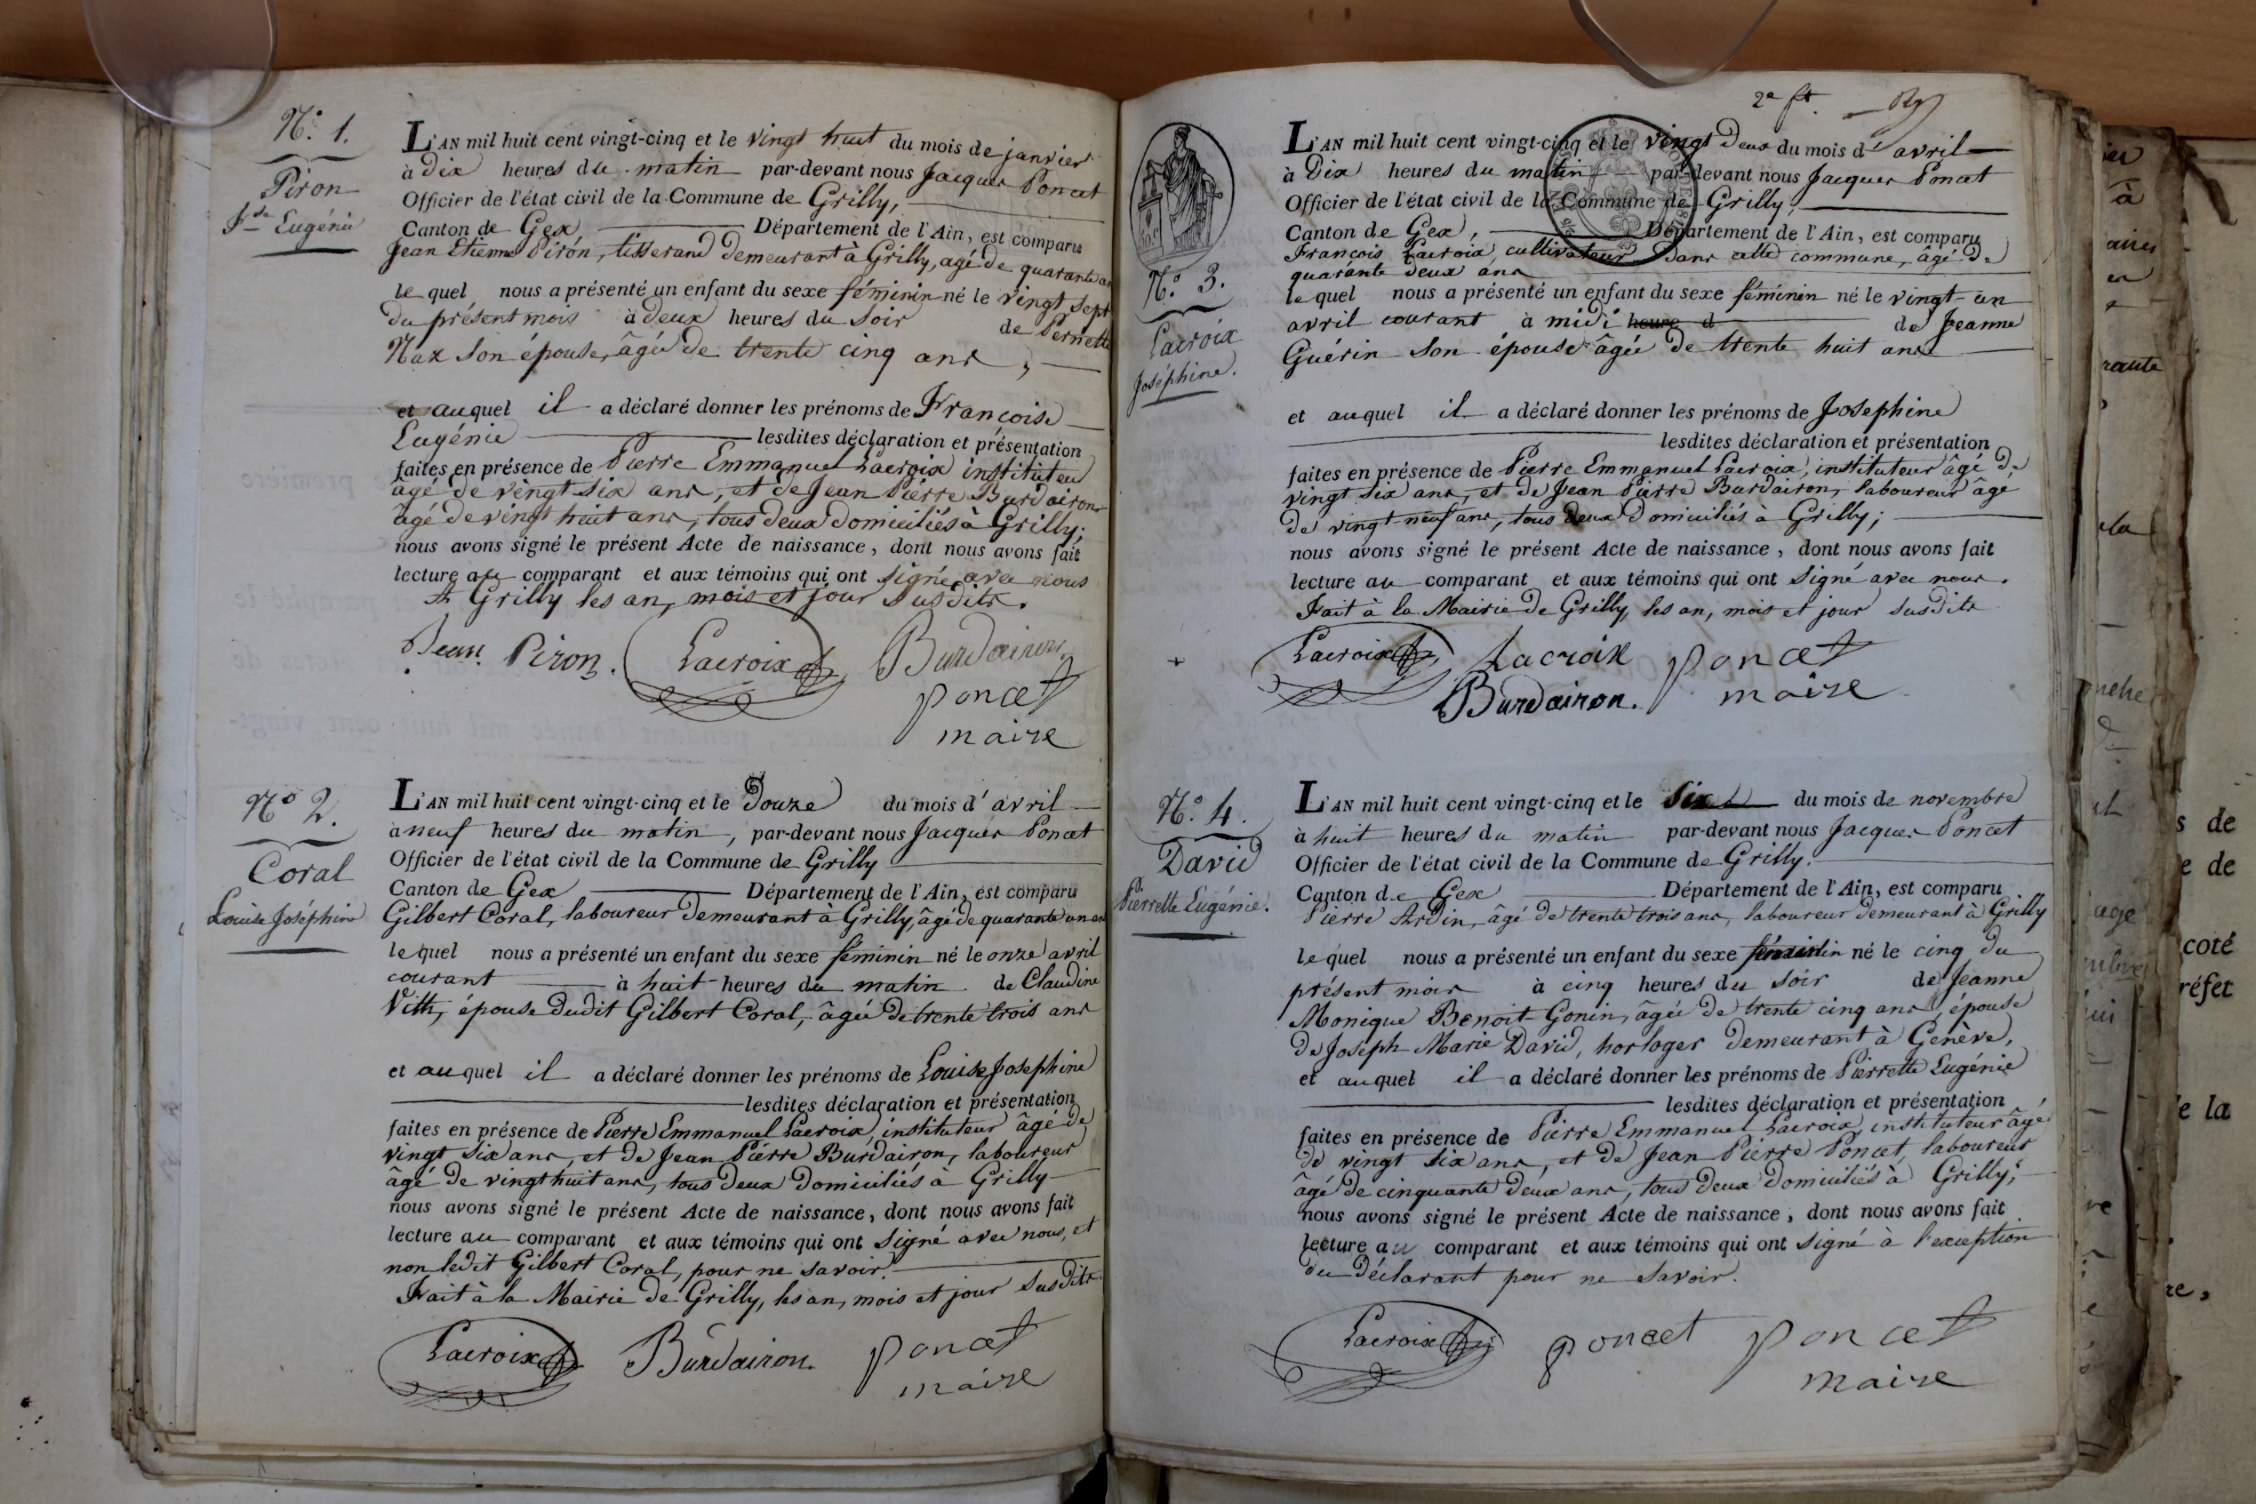 N.° 1.
Piron
F.se Eugénie
L'AN mil huit cent vingt-cinq et le vingt huit du mois de janvier
à Dix heures du matin par-devant nous Jacques Poncet
Officier de l'état civil de la Commune de Grilly,
Canton de Gex Département de l'Ain, est comparu
Jean Etienne Piron, tisserand demeurant à Grilly, agé de quarante ans
le quel nous a présenté un enfant du sexe féminin né le vingt sept
du présent mois à deux heures du soir de Pernette
Nax son épouse, âgée de trente cinq ans,
et auquel il a déclaré donner les prénoms de Françoise
Eugénie lesdites déclaration et présentation
faites en présence de Pierre Emmanuel Lacroix instituteur
âgé de vingt six ans, et de Jean Pierre Burdairon
âgé de vingt huit ans, tous deux domiciliés à Grilly;
nous avons signé le présent Acte de naissance, dont nous avons fait
lecture au comparant et aux témoins qui ont signé avec nous
A Grilly les an, mois et jour susdits.
Jean Piron. Lacroix Burdairon
poncet
maire
N.° 2.
Coral
Louise Joséphine
L'AN mil huit cent vingt-cinq et le Douze du mois d'avril
à neuf heures du matin, par-devant nous Jacques Poncet
Officier de l'état civil de la Commune de Grilly
Canton de Gex Département de l'Ain, est comparu
Gilbert Coral, laboureur demeurant à Grilly, âgé de quarante un ans
le quel nous a présenté un enfant du sexe féminin né le onze avril
courant à huit heures du matin de Claudine
Vitt, épouse dudit Gilbert Coral, âgée de trente trois ans
et auquel il a déclaré donner les prénoms de Louise Josephine
lesdites déclaration et présentation
faites en présence de Pierre Emmanuel Lacroix, instituteur âgé de
vingt six ans, et de Jean Pierre Burdairon, laboureur
âgé de vingt huit ans, tous deux domiciliés à Grilly
nous avons signé le présent Acte de naissance, dont nous avons fait
lecture au comparant et aux témoins qui ont signé avec nous, et
non ledit Gilbert Coral, pour ne savoir.
Fait à la Mairie de Grilly, les an, mois et jour susdits
Lacroix Burdairon. poncet
maire
2e ft
N.° 3.
Lacroix
Joséphine.
L'AN mil huit cent vingt-cinq et le vingt Deux du mois d'avril
à Dix heures du matin par-devant nous Jacques Poncet
Officier de l'état civil de la Commune de Grilly,
Canton de Gex, Département de l'Ain, est comparu
François Lacroix, cultivateur dans cette commune, âgé de
quarante deux ans
le quel nous a présenté un enfant du sexe féminin né le vingt-un
avril courant à midi heure d de Jeanne
Guérin son épouse âgée de trente huit ans
et auquel il a déclaré donner les prénoms de Josephine
lesdites déclaration et présentation
faites en présence de Pierre Emmanuel Lacroix, instituteur âgé de
vingt six ans, et de Jean Pierre Burdairon, laboureur âgé
de vingt neuf ans, tous deux domiciliés à Grilly;
nous avons signé le présent Acte de naissance, dont nous avons fait
lecture au comparant et aux témoins qui ont signé avec nous.
Fait à la Mairie de Grilly, les an, mois et jour susdits
Lacroix Lacroix poncet
Burdairon. maire
N.° 4.
David
Pierrette Eugénie.
L'AN mil huit cent vingt-cinq et le six du mois de novembre
à huit heures du matin par-devant nous Jacques Poncet
Officier de l'état civil de la Commune de Grilly.
Canton de Gex Département de l'Ain, est comparu
Pierre Ardin, âgé de trente trois ans, laboureur demeurant à Grilly
le quel nous a présenté un enfant du sexe féminin né le cinq du
présent mois à cinq heures du soir de Jeanne
Monique Benoit-Gonin, âgée de trente cinq ans, épouse
de Joseph Marie David, horloger demeurant à Genève,
et auquel il a déclaré donner les prénoms de Pierrette Eugénie
lesdites déclaration et présentation
faites en présence de Pierre Emmanuel Lacroix, instituteur âgé
de vingt six ans, et de Jean Pierre Poncet, laboureur
âgé de cinquante deux ans, tous deux domiciliés à Grilly;
nous avons signé le présent Acte de naissance, dont nous avons fait
lecture au comparant et aux témoins qui ont signé à l'exception
du déclarant pour ne savoir.
Lacroix poncet poncet
maire